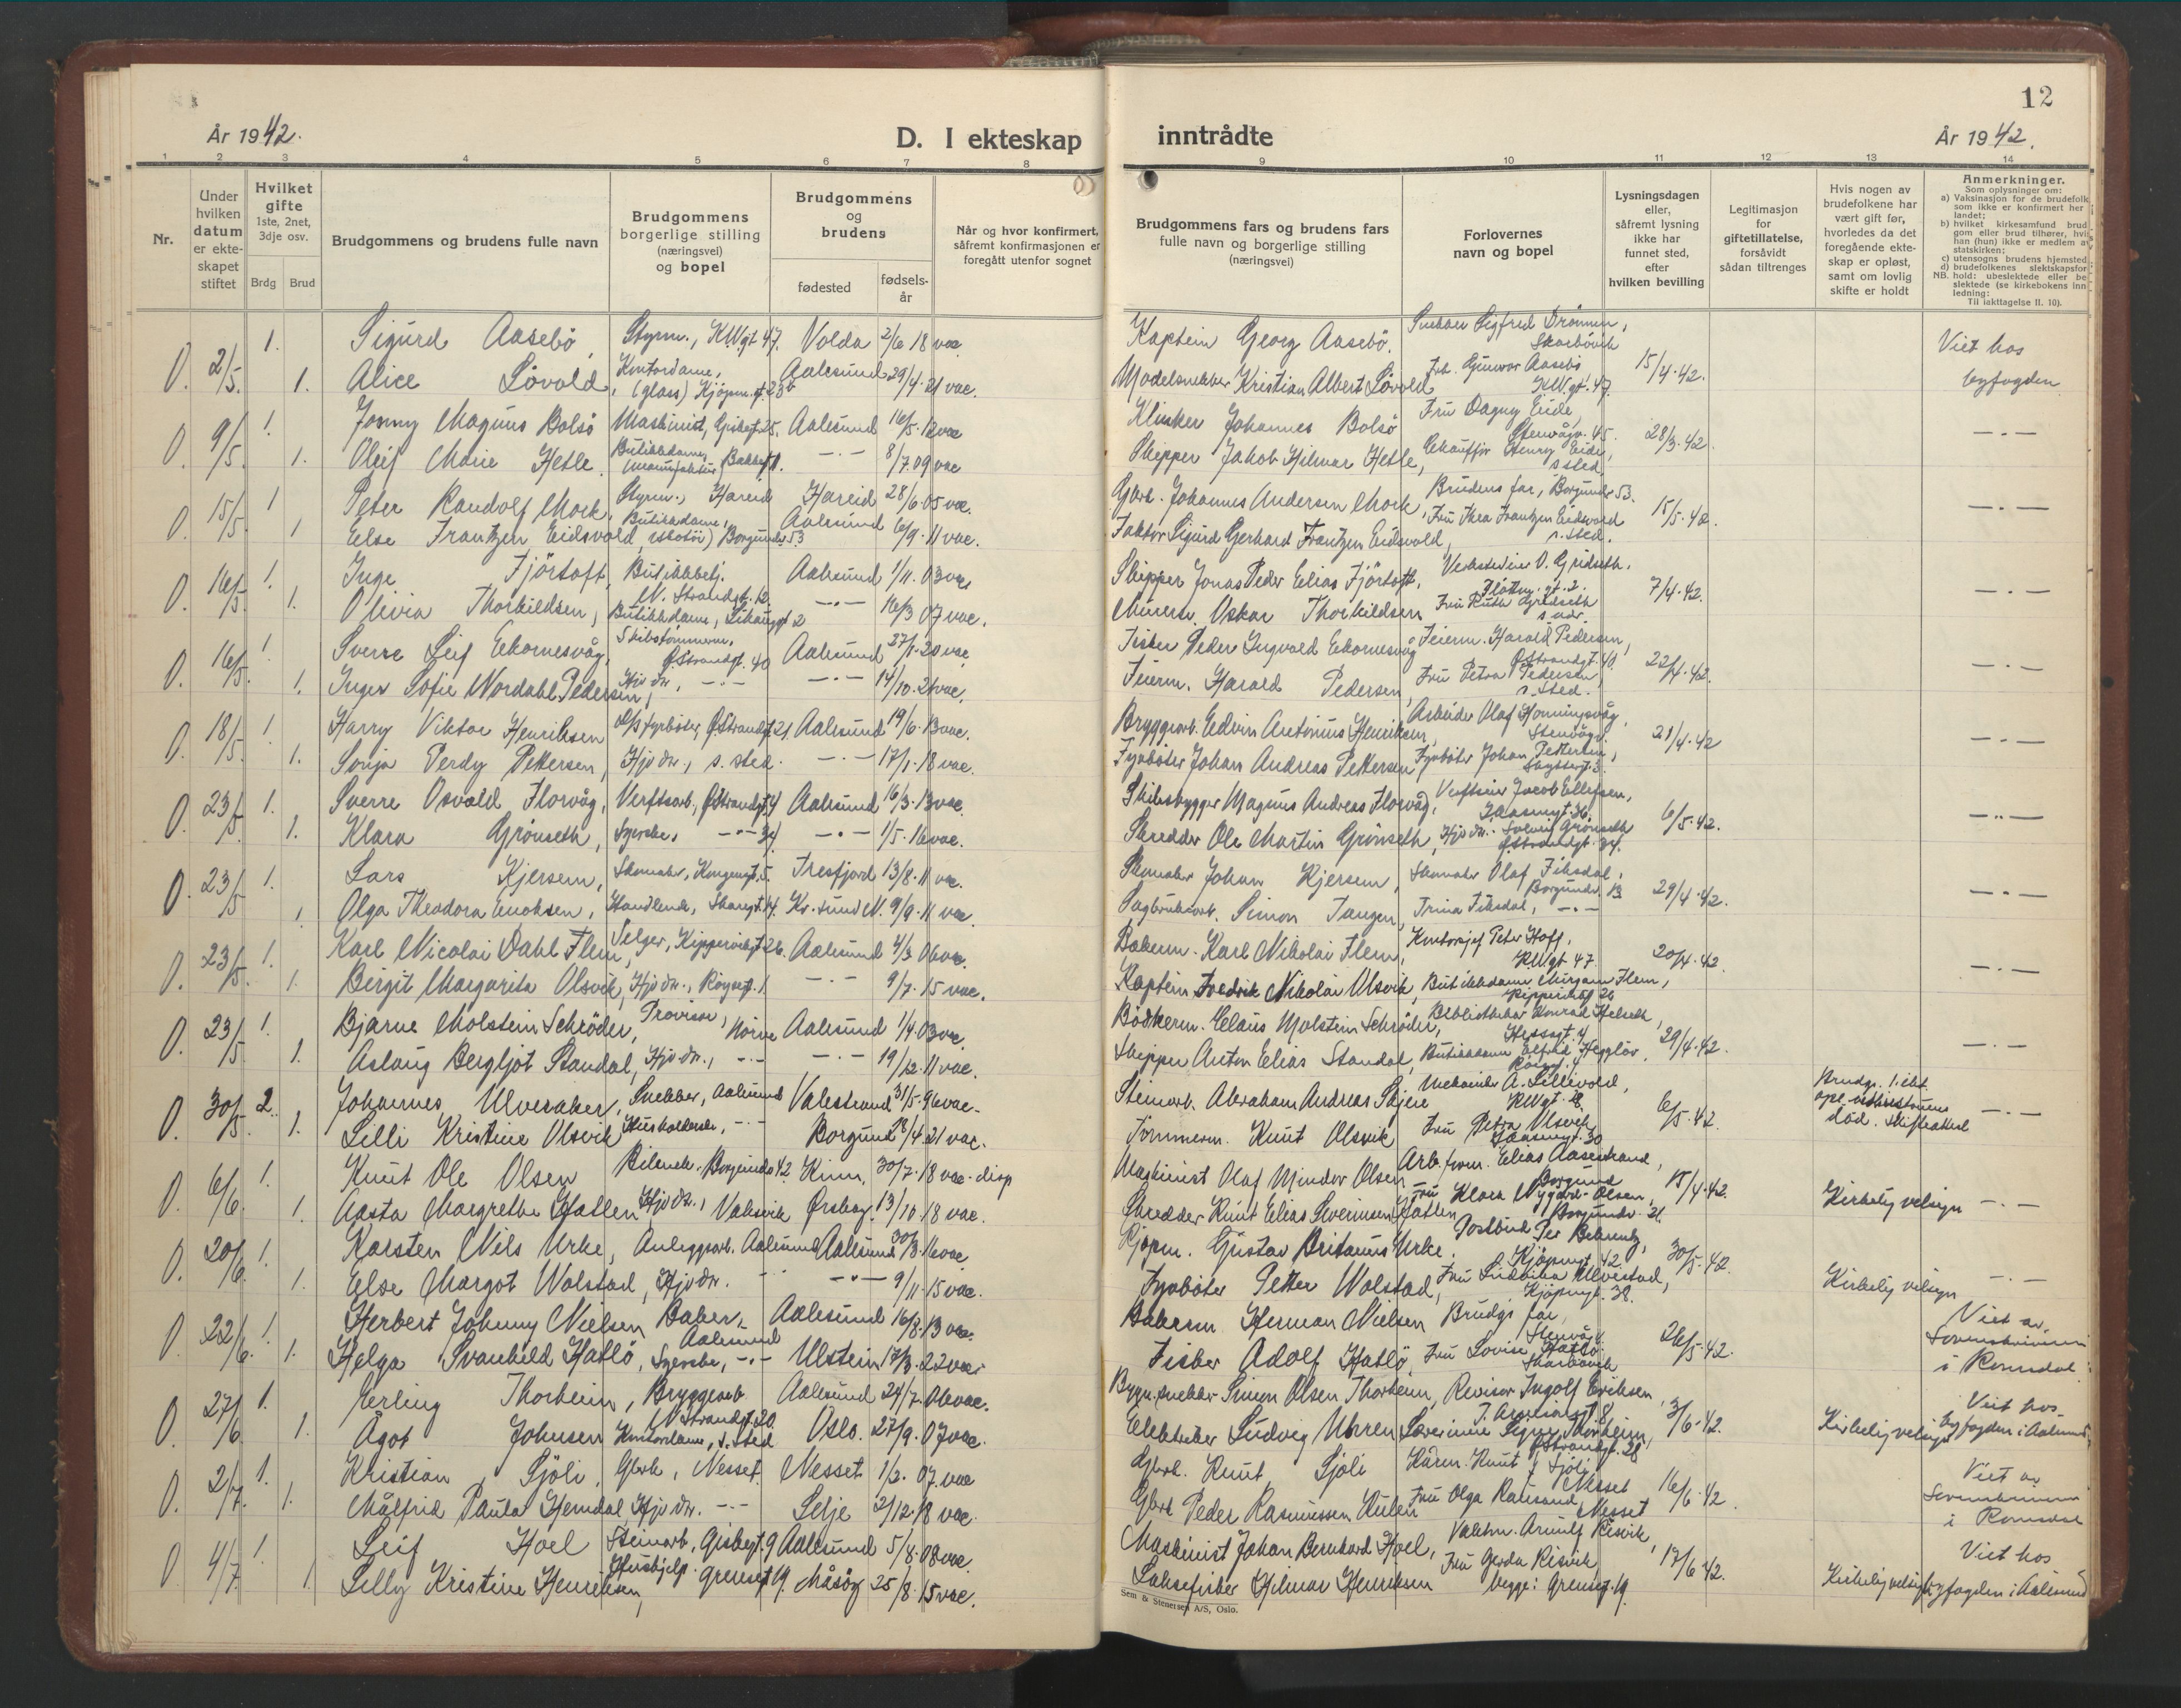 År 1942.
D. I ekteskap
1 2 3 4 5 6 7 8
Nr.
Under hvilken datum er ekteskapet stiftet
Hvilket gifte
1ste, 2net, 3dje osv.
Brdg Brud
Brudgommens og brudens fulle navn
Brudgommens borgerlige stilling (næringsvei) og bopel
Brudgommens og brudens
fødested
fødselsår
Når og hvor konfirmert, såfremt konfirmasjonen er foregått utenfor sognet
O. 2/5. 1. Sigurd Aasebö, Styrm., K.W.gt 47. Volda 2/6 18 vac.
1. Alice Lövold, Kontordame, (glass) Kjöpm.gt. 23b Aalesund 29/4. 21 vac.
O. 9/5. 1. Jonny Magnus Bolsö Maskinist, 25. Aalesund 16/5. 12 vac
1. Oleif Marie Hetle. Butikkdame, (manufaktur) — . — 8/7. 09 vac
O. 15/5. 1 Peter Randolf Mork, Styrm., Hareid Hareid 28/6. 05 vac.
1 Else Frantzen Eidsvold, Butikkdame, Borgundv. 53 Aalesund 6/9. 11 vac.
O. 16/5. 1. Inge Fjörtoft, Butikkbetj. N. Strandgt. 12. Aalesund 1/11. 03 vac
1. Olivia Thorkildsen, Butikkdame, — . — 16/3 07 vac.
O. 16/5. 1. Sverre Leif Ekornesvåg, Skibstömmerm. Ø. Strandgt. 40 Aalesund 27/1. 20 vac.
1. Inger Sofie Nordahl Pedersen, Hjv. dr., — . — — . — 14/10. 21 vac.
O. 18/5. 1. Harry Viktor Henriksen fyrböter, Ø. Strandgt 21. Aalesund 19/6. 13 vac.
1. Sonja Perdy Pettersen, Hjv. dr., s. sted. — . — 17/1. 18 vac.
O. 23/5. 1. Sverre Osvald Florvåg, Verftsarb., Ø. Strandgt. 4 Aalesund 16/3. 13 vac.
1. Klara Grönseth, Syerske, — . — 34 — . — 1/5. 16 vac.
O. 23/5 1. Lars Kjersem, Skomaker, Kongensgt. 5. Tresfjord 13/8. 11 vac.
1 Olga Theodora Enoksen, Handlende, Skaregt. 14. Kr. sund N. 9/9. 11 vac.
O. 23/5. 1. Karl Nicolai Dahl Flem, Selger, Kipperviksgt 26. Aalesund 4/3 06 vac.
1. Birgit Margarita Olsvik, Hjv. dr., 1 — . — 9/7. 15 vac.
O. 23/5 1. Bjarne Molstein Schröder, Provisor, Nörve Aalesund 1/4. 03 vac.
1. Aslaug Bergljot Standal, Hjv. dr., — . — — . — 19/12. 11 vac.
O. 30/5. 2. Johannes Ulvesaker, Snekker, Aalesund Valestrand 31/5. 96 vac.
1. Lilli Kristine Olsvik Husholderske, — . — Borgund 28/4. 21 vac.
O. 6/6. 1. Knut Ole Olsen Borgundv. 42. Kinn, 30/7. 18 vac. disp
1. Aasta Margrethe Hatlen Hjv. dr., Valsvik Ørskog. 13/10. 18 vac.
O. 20/6. 1. Karsten Nils Urke, Anleggsarb. Aalesund Aalesund 30/8. 16 vac
1. Else Margot Wolstad, Hjv. dr. — . — 9/11. 15 vac.
O. 22/6. 1. Herbert Johnny Nielsen Baker, Aalesund Aalesund 16/8. 13 vac.
1. Helga Svanhild Hatlö, Syerske, — . — Ulstein 17/3. 22 vac.
O. 27/6 1. Erling Thorheim, Bryggearb N. Strandgt. 20. Aalesund 24/7. 06 vac.
1. Ågot Johnsen Kontordame, s. sted Oslo. 27/9. 07 vac.
O. 2/7. 1. Kristian Sjöli, Gbrk., Nesset. Nesset 1/2. 07 vac
1. Målfrid Paula Hemdal, Hjv. dr. — . — Selje 2/12. 18 vac.
O 4/7 1. Leif Hoel Steinarb., 9 Aalesund 5/8. 08 vac.
1 Lilly Kristine Henriksen, Hushjelp. Grensegt 19. Måsöy 25/8. 15 vac.
12
inntrådte
År 1942.
9 10 11 12 13 14
Brudgommens fars og brudens fars fulle navn og borgerlige stilling (næringsvei)
Forlovernes navn og bopel
Lysningsdagen eller, såfremt lysning ikke har funnet sted, efter hvilken bevilling
Legitimasjon for giftetillatelse, forsåvidt sådan tiltrenges
Hvis nogen av brudefolkene har vært gift før, hvorledes da det foregående ekteskap er opløst, samt om lovlig skifte er holdt
Anmerkninger.
Som oplysninger om:
a) Vaksinasjon for de brudefolk som ikke er konfirmert her landet;
b) hvilket kirkesamfund brudgom eller brud tilhører, hvis han (hun) ikke er medlem av statskirken;
c) utensogns brudens hjemsted
d) brudefolkenes slektskapsforhold: ubeslektede eller beslektede (se kirkebokens innledning:
NB.
Til iakttagelse II. 10).
Kaptein Georg Aasebö. Snekker Sigfred Drönnen, Skarbövik
Modelsnekker Kristian Albert Lövold Frk. Gunvor Aasebö K.W.gt. 47. 15/4. 42. Viet hos byfogden
Klinker Johannes Bolsö Fru Dagny Eide, Stenvågv. 45.
Skipper Jakob Hilmar Hetle, Chauffør Henry Eide, s. sted. 28/3. 42. — . —
Gbrk. Johannes Andersen Mork, Brudens far, Borgundv. 53.
Faktor Sigurd Gerhard Frantzen Eidsvold, Fru Thea Frantzen Eidsvold s. sted. 15/5. 42. — . —
Skipper Jonas Peder Elias Fjörtoft, Verkstedeier O. Gridseth,
Murerm. Oskar Thorkildsen Fru Ruth Gridseth s. adr. 7/4. 42. — . —
Fisker Peder Ingvald Ekornesvåg Feierm. Harald Pedersen, Ø. Strandgt. 40.
Feierm. Harald Pedersen, Fru Petra Pedersen, s. sted. 22/4. 42. — . —
Bryggearb. Edvin Antonius Henriksen, Arbeider Olaf Honningsvåg, Stenvågv.
Fyrböter Johan Andreas Pettersen Fyrböter Johan Pettersen, 21/4. 42 — . —
Skibsbygger Magnus Andreas Florvåg, Verftseier Jacob Ellefsen,
Skredder Ole Martin Grönseth, Hjv. dr. Solveig Grönseth Ø. Strandgt. 34. 6/5. 42. — . —
Skomaker Johan Kjersem, Skomaker Olaf Fiksdal, Borgundv. 13
Sagbruksarb. Simon Tangen, Trina Fiksdal, — . — 29/4. 42. — . —
Bakerm. Karl Nikolai Flem, Kontorsjef Peter Hoff, K.W.gt 47
Kaptein Fredrik Nikolai Olsvik, Butikkdame Mirjam Flem, Kipperviksgt 26 20/4. 42. — . —
Bödkerm. Claus Molstein Schröder, Bibliothekar Konrad Helseth,
Skipper Anton Elias Standal, Butikkdame 29/4. 42. — . —
Steinarb. Abraham Andreas Skjeie Mekaniker A. Lillevold, K.W.gt. 18.
Tömmerm. Knut Olsvik Fru Petra Ulsvik, 30 6/5. 42. Brudg. 1. ekt. opl. ved hustruens död. Skifteattest — . —
Maskinist Olaf Mindor Olsen Arb.form. Elias Aasestrand, Borgund
Skredder Knut Elias Severinsen Hatlen Fru Klara Nygård-Olsen, Borgundv. 21. 15/4. 42. Kirkelig velsign — . —
Kjöpm. Gustav Britanus Urke. Postbud Per Behrentz, Kjöpmgt. 42.
Fyrböter Petter Wolstad, Fru Ludvikka Ulvestad, Kjöpmgt. 38. 30/5. 42. Kirkelig velsign — . —
Bakerm. Herman Nielsen Brudgs far, Stenvågv.
Fisker Adolf Hatlö Fru Lovise Hatlö. Skarbövik 26/5. 42. Viet av Sorenskriveren i Romsdal.
Bygn.snekker Simen Olsen Thorheim, Revisor Ingolf Eriksen,
Elektriker Ludvig Uhren Servitrine Signe Thorheim, Ø. Strandgt. 28 3/6. 42. Kirkelig velsign Viet hos byfogden i Aalesund
Gbrk. Knut Sjöli Kårm. Knut Sjöli Nesset
Gbrk Peder Rasmussen Fru Olga Rausand, Nesset 16/6. 42. Viet av Sorenskriveren i Romsdal
Maskinist Johan Bernhard Hoel, Vaktm. Arnulf Risvik,
Laksefisker Hilmar Henriksen Fru Gerda Risvik begge: Grensegt. 19. 17/6 42. Kirkelig velsign Viet hos byfogden i Aalesund
Sem & Stenersen A/S, Oslo.